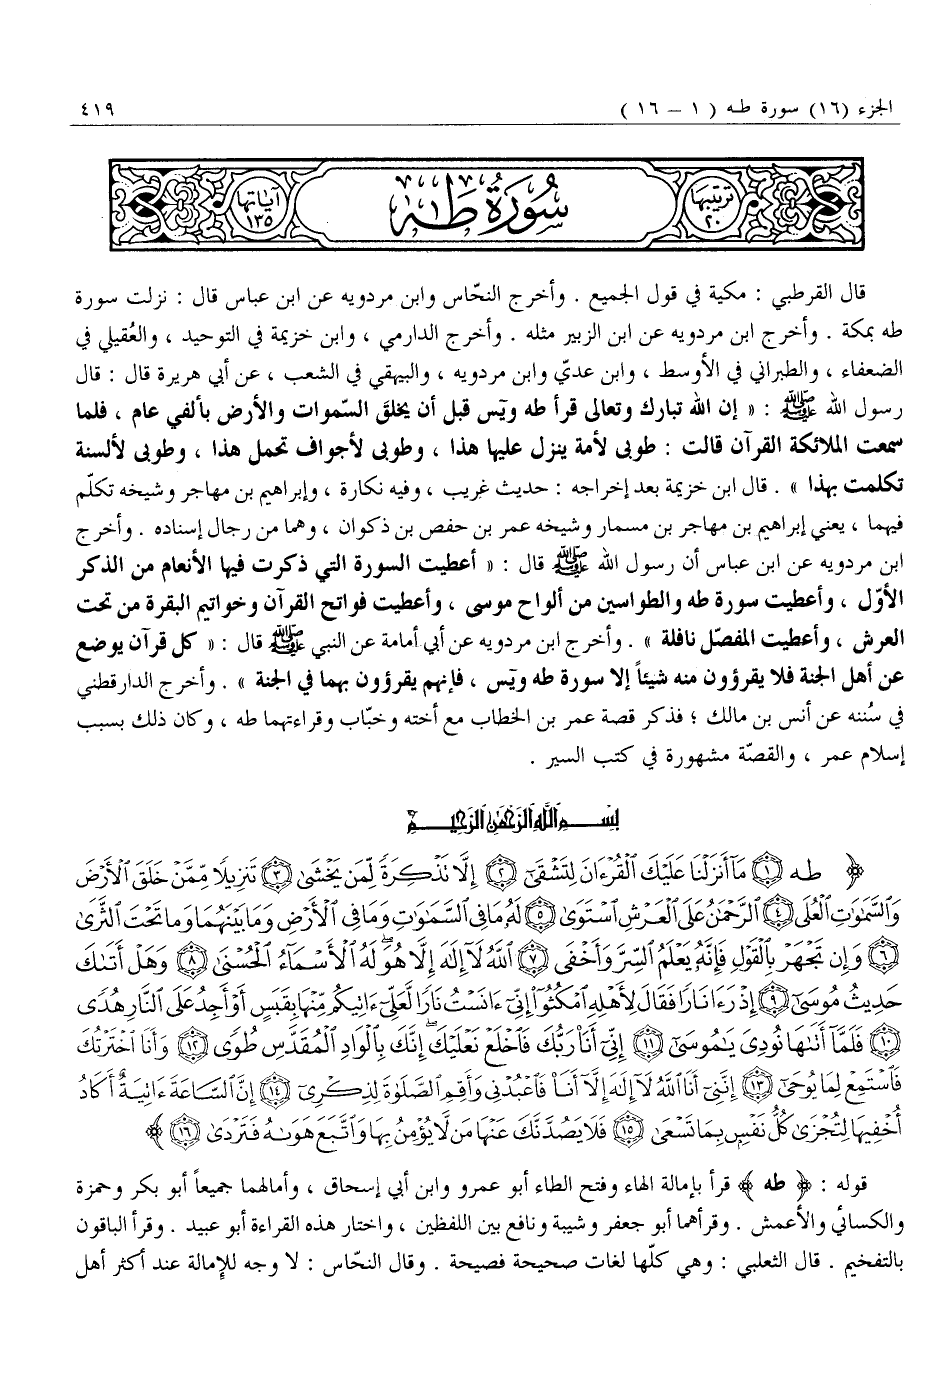 الجزء (١٦) سورة طـه ( ١ – ١٦ )
٤١٩
ترتيبها ٢٠
سُورَةُ طٰهٰ
آياتها ١٣٥
قال القرطبي : مكية في قول الجميع . وأخرج النحّاس وابن مردويه عن ابن عباس قال : نزلت سورة
طه بمكة . وأخرج ابن مردويه عن ابن الزبير مثله . وأخرج الدارمي ، وابن خزيمة في التوحيد ، والعُقيلي في
الضعفاء ، والطبراني في الأوسط ، وابن عديّ وابن مردويه ، والبيهقي في الشعب ، عن أبي هريرة قال : قال
رسول الله ﷺ : « إن الله تبارك وتعالى قرأ طه ويٓس قبل أن يخلقَ السّموات والأرض بألفي عام ، فلما
سمعت الملائكة القرآن قالت : طوبى لأمة ينزل عليها هذا ، وطوبى لأجواف تحمل هذا ، وطوبى لألسنة
تكلمت بهذا » . قال ابن خزيمة بعد إخراجه : حديث غريب ، وفيه نكارة ، وإبراهيم بن مهاجر وشيخه تكلّم
فيهما ، يعني إبراهيم بن مهاجر بن مسمار وشيخه عمر بن حفص بن ذكوان ، وهما من رجال إسناده . وأخرج
ابن مردويه عن ابن عباس أن رسول الله ﷺ قال : « أعطيت السورة التي ذكرت فيها الأنعام من الذكر
الأوّل ، وأعطيت سورة طه والطواسين من ألواح موسى ، وأعطيت فواتح القرآن وخواتيم البقرة من تحت
العرش ، وأعطيت المفصّل نافلة » . وأخرج ابن مردويه عن أبي أمامة عن النبي ﷺ قال : « كل قرآن يوضع
عن أهل الجنة فلا يقرؤون منه شيئاً إلا سورة طه ويٓس ، فإنهم يقرؤون بهما في الجنة » . وأخرج الدارقطني
في سُننه عن أنس بن مالك ؛ فذكر قصة عمر بن الخطاب مع أخته وخبّاب وقراءتهما طه ، وكان ذلك بسبب
إسلام عمر ، والقصّة مشهورة في كتب السير .
بسم الله الرحمن الرحيم
﴿ طه ۝١ مَآ أَنزَلْنَا عَلَيْكَ ٱلْقُرْءَانَ لِتَشْقَىٰٓ ۝٢ إِلَّا تَذْكِرَةً لِّمَن يَخْشَىٰ ۝٣ تَنزِيلًا مِّمَّنْ خَلَقَ ٱلْأَرْضَ
وَٱلسَّمَٰوَٰتِ ٱلْعُلَى ۝٤ ٱلرَّحْمَٰنُ عَلَى ٱلْعَرْشِ ٱسْتَوَىٰ ۝٥ لَهُۥ مَا فِي ٱلسَّمَٰوَٰتِ وَمَا فِي ٱلْأَرْضِ وَمَا بَيْنَهُمَا وَمَا تَحْتَ ٱلثَّرَىٰ
۝٦ وَإِن تَجْهَرْ بِٱلْقَوْلِ فَإِنَّهُۥ يَعْلَمُ ٱلسِّرَّ وَأَخْفَى ۝٧ ٱللَّهُ لَآ إِلَٰهَ إِلَّا هُوَ ۖ لَهُ ٱلْأَسْمَآءُ ٱلْحُسْنَىٰ ۝٨ وَهَلْ أَتَىٰكَ
حَدِيثُ مُوسَىٰٓ ۝٩ إِذْ رَءَا نَارًا فَقَالَ لِأَهْلِهِ ٱمْكُثُوٓا۟ إِنِّيٓ ءَانَسْتُ نَارًا لَّعَلِّيٓ ءَاتِيكُم مِّنْهَا بِقَبَسٍ أَوْ أَجِدُ عَلَى ٱلنَّارِ هُدًى
۝١٠ فَلَمَّآ أَتَىٰهَا نُودِيَ يَٰمُوسَىٰٓ ۝١١ إِنِّيٓ أَنَا۠ رَبُّكَ فَٱخْلَعْ نَعْلَيْكَ ۖ إِنَّكَ بِٱلْوَادِ ٱلْمُقَدَّسِ طُوًى ۝١٢ وَأَنَا ٱخْتَرْتُكَ
فَٱسْتَمِعْ لِمَا يُوحَىٰٓ ۝١٣ إِنَّنِيٓ أَنَا ٱللَّهُ لَآ إِلَٰهَ إِلَّآ أَنَا۠ فَٱعْبُدْنِي وَأَقِمِ ٱلصَّلَوٰةَ لِذِكْرِيٓ ۝١٤ إِنَّ ٱلسَّاعَةَ ءَاتِيَةٌ أَكَادُ
أُخْفِيهَا لِتُجْزَىٰ كُلُّ نَفْسٍۭ بِمَا تَسْعَىٰ ۝١٥ فَلَا يَصُدَّنَّكَ عَنْهَا مَن لَّا يُؤْمِنُ بِهَا وَٱتَّبَعَ هَوَىٰهُ فَتَرْدَىٰ ۝١٦ ﴾
قوله : ﴿ طه ﴾ قرأ بإمالة الهاء وفتح الطاء أبو عمرو وابن أبي إسحاق ، وأمالهما جميعاً أبو بكر وحمزة
والكسائي والأعمش . وقرأهما أبو جعفر وشيبة ونافع بين اللفظين ، واختار هذه القراءة أبو عبيد . وقرأ الباقون
بالتفخيم . قال الثعلبي : وهي كلّها لغات صحيحة فصيحة . وقال النحّاس : لا وجه للإمالة عند أكثر أهل